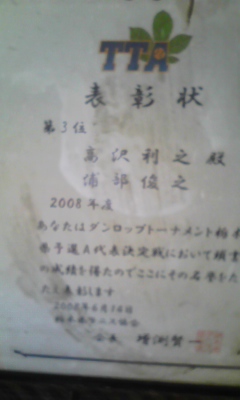 TTA
表彰状
第3位
高沢利之 殿
浦部俊之
2008年度
あなたはダンロップトーナメント栃木
県予選A代表決定戦において頭書
の成績を得たのでここにその名誉をた
たえ表彰します
2008年6月16日
栃木県テニス協会
会長 増渕賢一